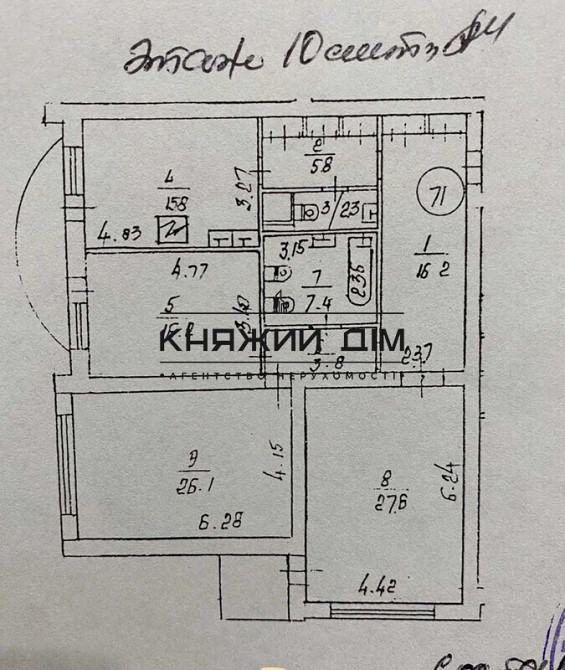 этаж 10
4
15.8
3.27
4.83
2
5.8
3
2.3
71
1
16.2
3.15
7
7.4
2.35
4.77
5
3.8
2.37
КНЯЖИЙ ДІМ
•АГЕНТСТВО НЕРУХОМОСТІ•
9
26.1
4.15
6.28
8
27.6
6.24
4.42